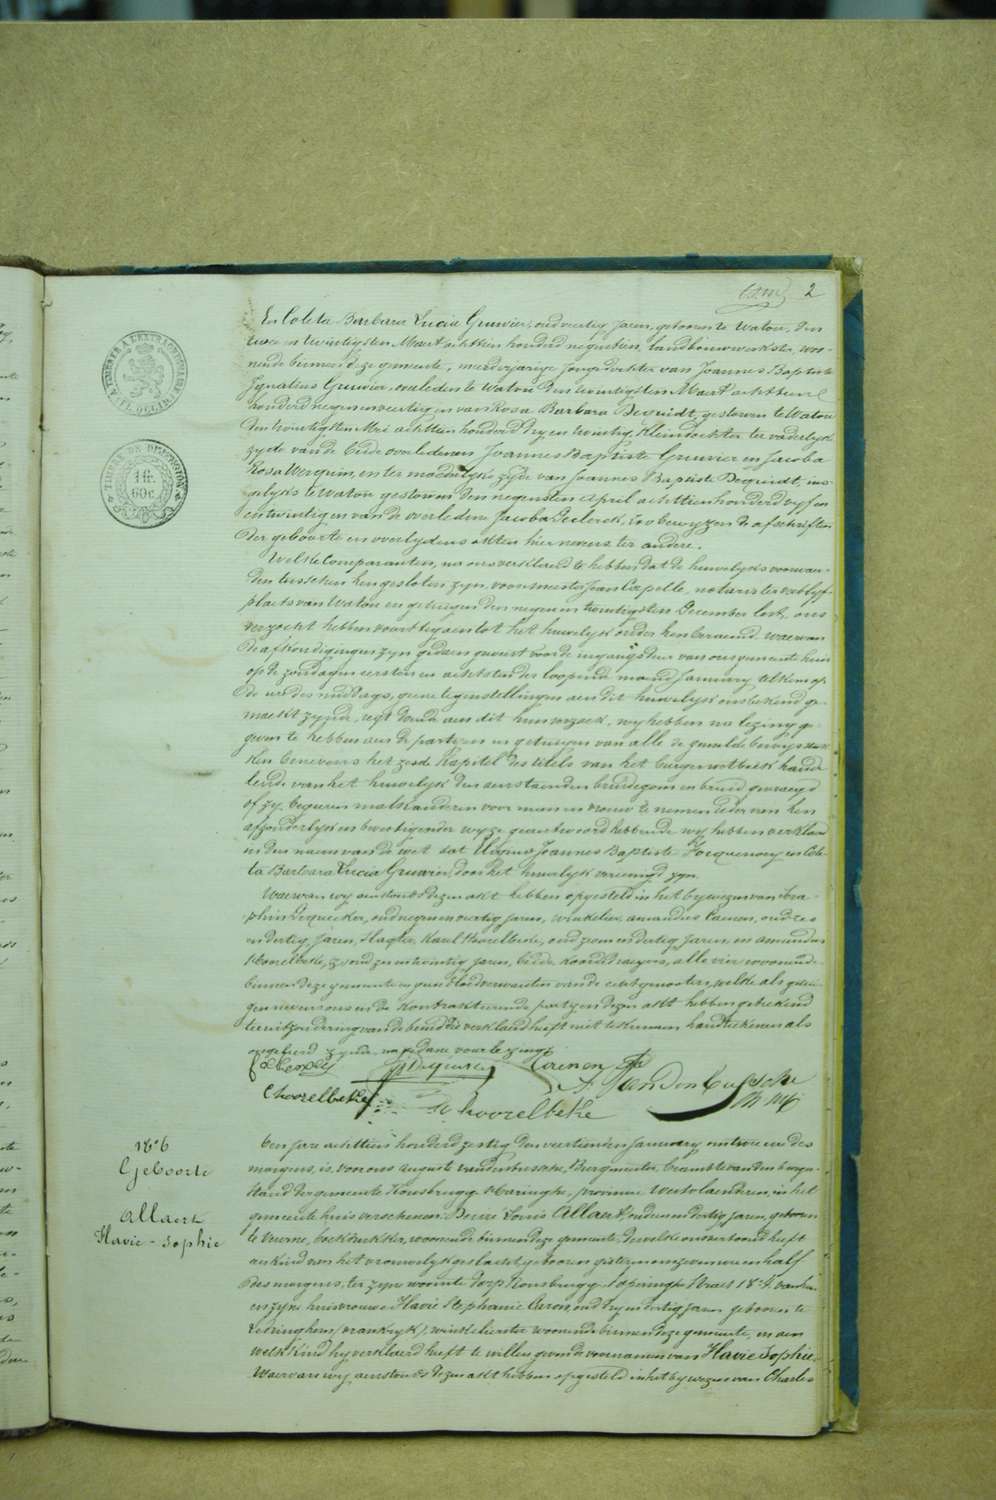 2
En Coleta Barbara Lucia Gruwier, oud veertig jaren, geboren te Watou, den
twee en twintigsten Maart achttien honderd negentien, landbouwwerkster, woo-
nende binnen deze gemeente, meerderjarige jonge dochter van Joannes Baptiste
Ignatius Gruwier, overleden te Watou den twintigsten Maart achttien
honderd negen en veertig en van Rosa Barbara Dequidt, gestorven te Watou
den twintigsten Mei achttien honderd dry en twintig, kleindochter ter vaderlyke
zyde van de beide overledenen Joannes Baptiste Gruwier en Jacoba
Rosa Werquin, en ter moederlyke zyde van Joannes Baptiste Dequidt, ins-
gelyks te Watou gestorven den negensten April achttien honderd vyf en
en twintig en van de overledene Jacoba Declerck, zoo bewyzen de afschriften
der geboorte en overlydens akten hier nevens ter andere.
Welke Comparanten, na ons verklaard te hebben dat de huwelyks voorwaar-
den tusschen hen gesloten zyn, voor meester Jean Capelle, notaris ter verblyf-
plaats van Watou en getuigen den negen en twintigsten December lest, ons
verzocht hebben voorttegaen tot het huwelyk onder hen beraemd waervan
de afkondigingen zyn gedaen geweest voor de ingangsdeur van ons gemeente huis
op de zondagen eersten en achtsten der loopende maand January telkens op
de ure des middags, geene tegenstellingen aen dit huwelyk ons bekend ge-
maekt zynde, regt doende aen dit hun verzoek, wy hebben na lezing ge-
geven te hebben aen de partyen en getuigen van alle de gemelde bewys stuk-
ken benevens het zesde Kapitel des titels van het burger wetboek hand-
lende van het huwelyk den aenstaenden bruidegom en bruid gevraegd
of zy begeeren malkanderen voor man en vrouw te nemen ieder van hen
afzonderlyk en bevestigender wyze geantwoord hebbende wy hebben verklaerd
in den naem van de wet dat Joannes Baptiste en Cole-
ta Barbara Lucia Gruwier, door het huwelyk vereenigd zyn.
Waervan wy aenstonds dezen akt hebben opgesteld in het bywezen van Sera-
phin Dequecker, oud negen en veertig jaren, winkelier, amandus Coenen, oud zes
en dertig jaren, slagter, Karel Choorelbeke, oud zeven en dertig jaren, en amandus
Choorelbeke, oud zes en twintig jaren, beide koordedraeyers, alle vier woonende
binnen deze gemeente en geen bloedverwanten van de echtgenooten, welke als getui-
gen nevens ons en de kontrakteerende partyen dezen akt hebben geteekend
ter uitzondering van de bruid die verklaerd heeft niet te kunnen handteekenen als
ongeleerd zynde, na gedane voorlezing.
Choorelbeke
A. Vandenbussche
Choorelbeke
N° 6
Geboorte
Allaert
Flavie-Sophie
Een jare achttien honderd zestig den veertienden January om twee ure des
morgens, is voor ons Auguste Vandenbussche, Burgmeester beambte van den burger-
stand der gemeente Rousbrugge-Haringhe, provincie Westvlaenderen, in het
gemeente huis verschenen: Desiré Louis Allaert, oud een en dertig jaren, geboren
te Veurne, boekdrukker, woonende binnen deze gemeente, dewelke ons vertoond heeft
een kind van het vrouwelyk geslacht, geboren gisteren om zeven ure en half
des morgens, ter zyner woonste dorp Rousbrugge, Poperinghe straet 18. 4. van hem
en zyne huisvrouwe Flavie Stephanie Caron, oud dry en dertig jaren geboren te
Ledringhem (Frankryk), winkelierster woonende binnen deze gemeente, en aen
welk kind hy verklaerd heeft te willen geven de voornamen van Flavie Sophie.
Waervan wy aenstonds dezen akt hebben opgesteld in het bywezen van Charles